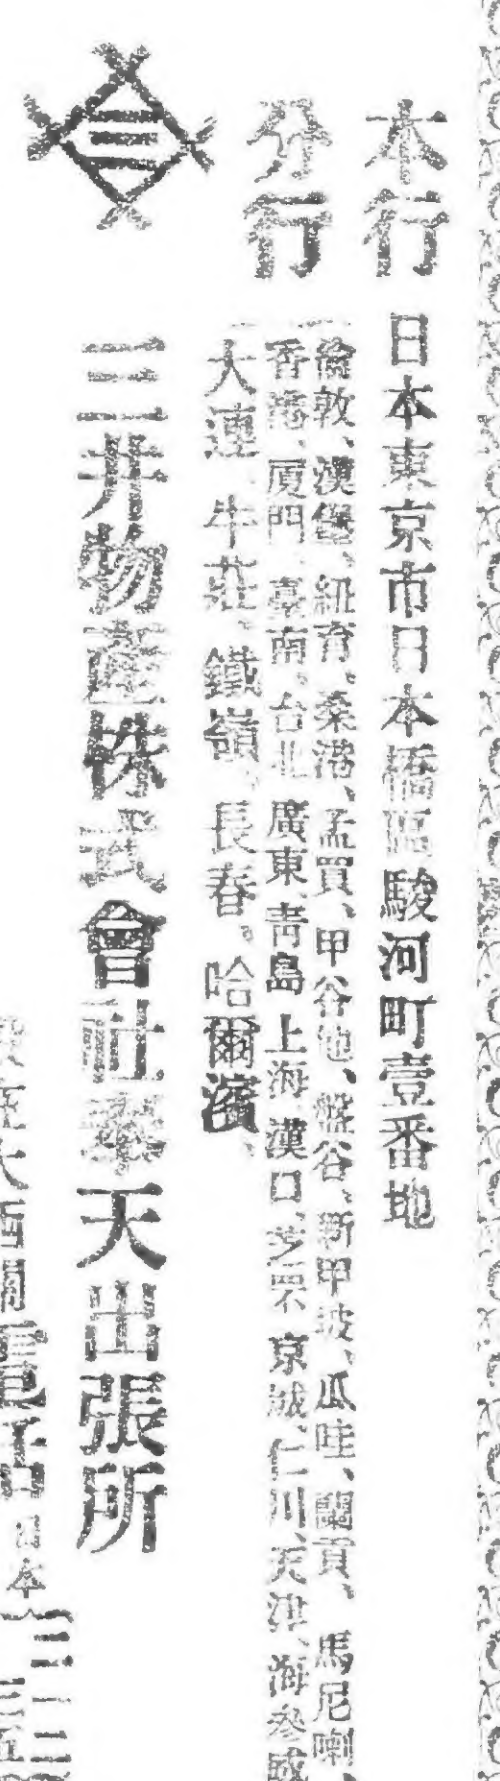 本行 日本東京市日本橋區駿河町壹番地
分行
倫敦、漢堡、紐育、桑港、孟買、甲谷他、盤谷、新甲坡、瓜哇、蘭貢、馬尼喇、
香港、厦門、臺南、台北、廣東、青島、上海、漢口、芝罘、京城、仁川、天津、海參威
大連、牛莊、鐵嶺、長春、哈爾濱、
三井物產株式會社奉天出張所